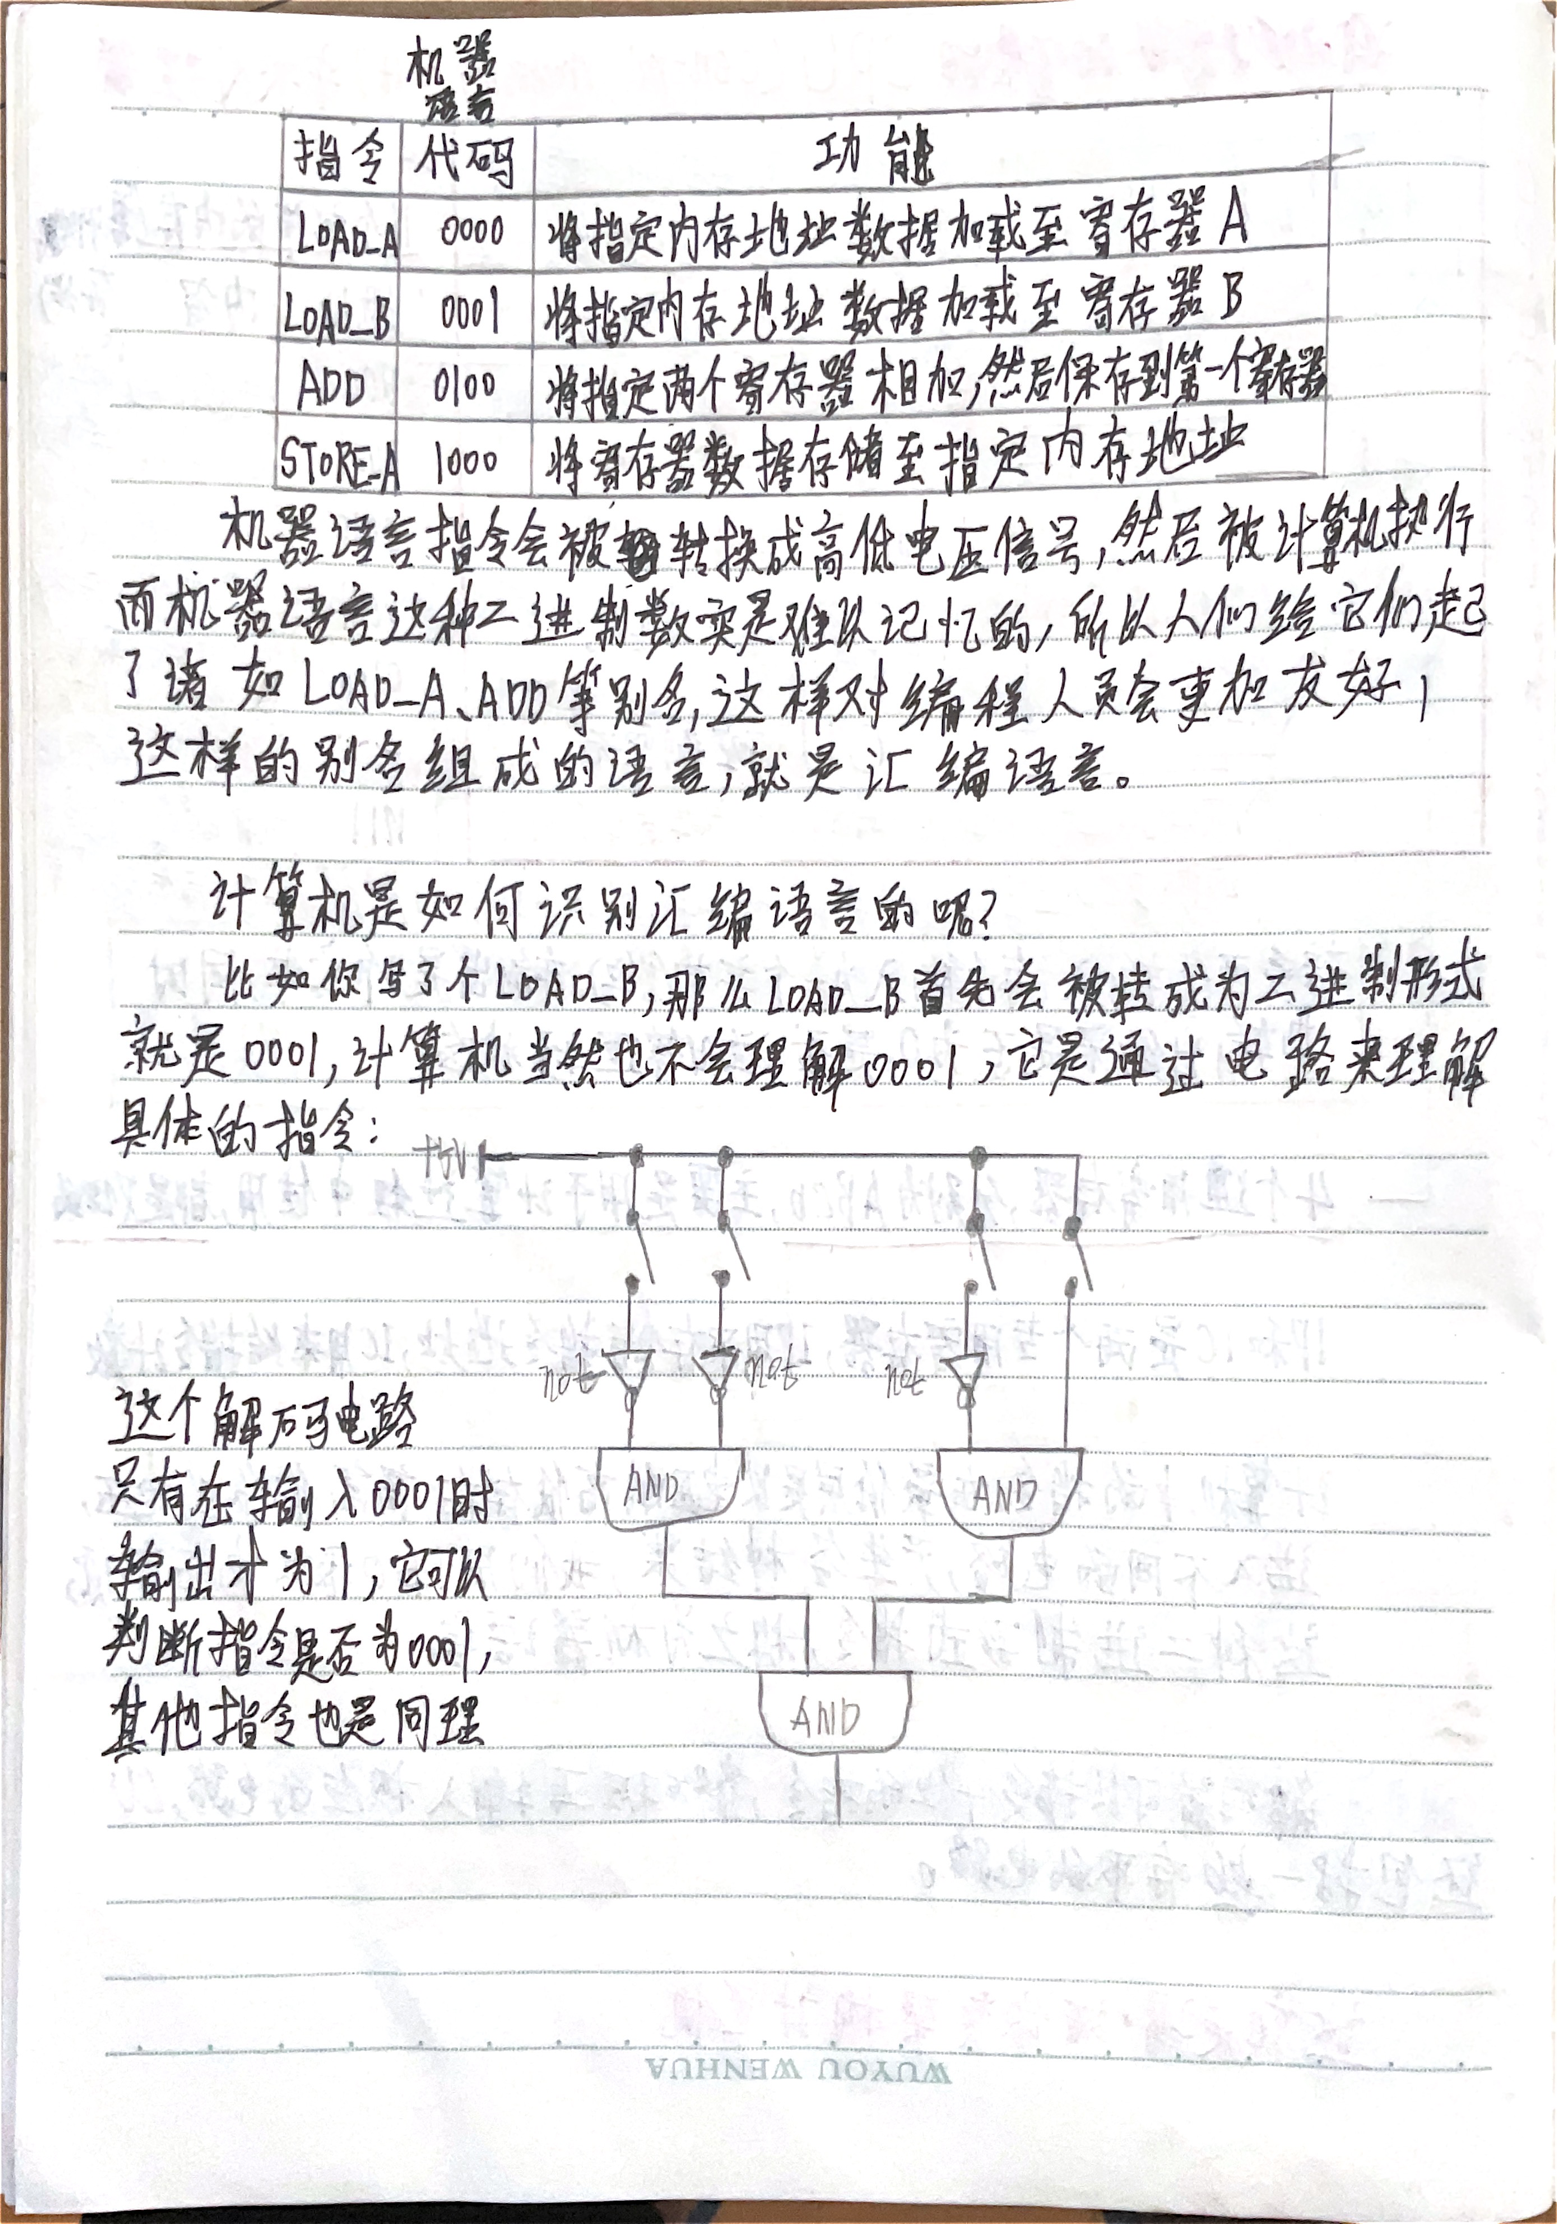 机器
语言
指令 代码 功能
LOAD_A 0000 将指定内存地址数据加载至寄存器A
LOAD_B 0001 将指定内存地址数据加载至寄存器B
ADD 0100 将指定两个寄存器相加,然后保存到第一个寄存器
STORE_A 1000 将寄存器数据存储至指定内存地址
机器语言指令会被转换成高低电压信号,然后被计算机执行
而机器语言这种二进制数实是难以记忆的,所以人们给它们起
了诸如LOAD_A、ADD等别名,这样对编程人员会更加友好,
这样的别名组成的语言,就是汇编语言。
计算机是如何识别汇编语言的呢?
比如你写了个LOAD_B,那么LOAD_B首先会被转成为二进制形式
就是0001,计算机当然也不会理解0001,它是通过电路来理解
具体的指令:
+5V
not not not
这个解码电路
AND AND
只有在输入0001时
输出才为1,它可以
判断指令是否为0001,
其他指令也是同理
AND
WUYOU WENHUA